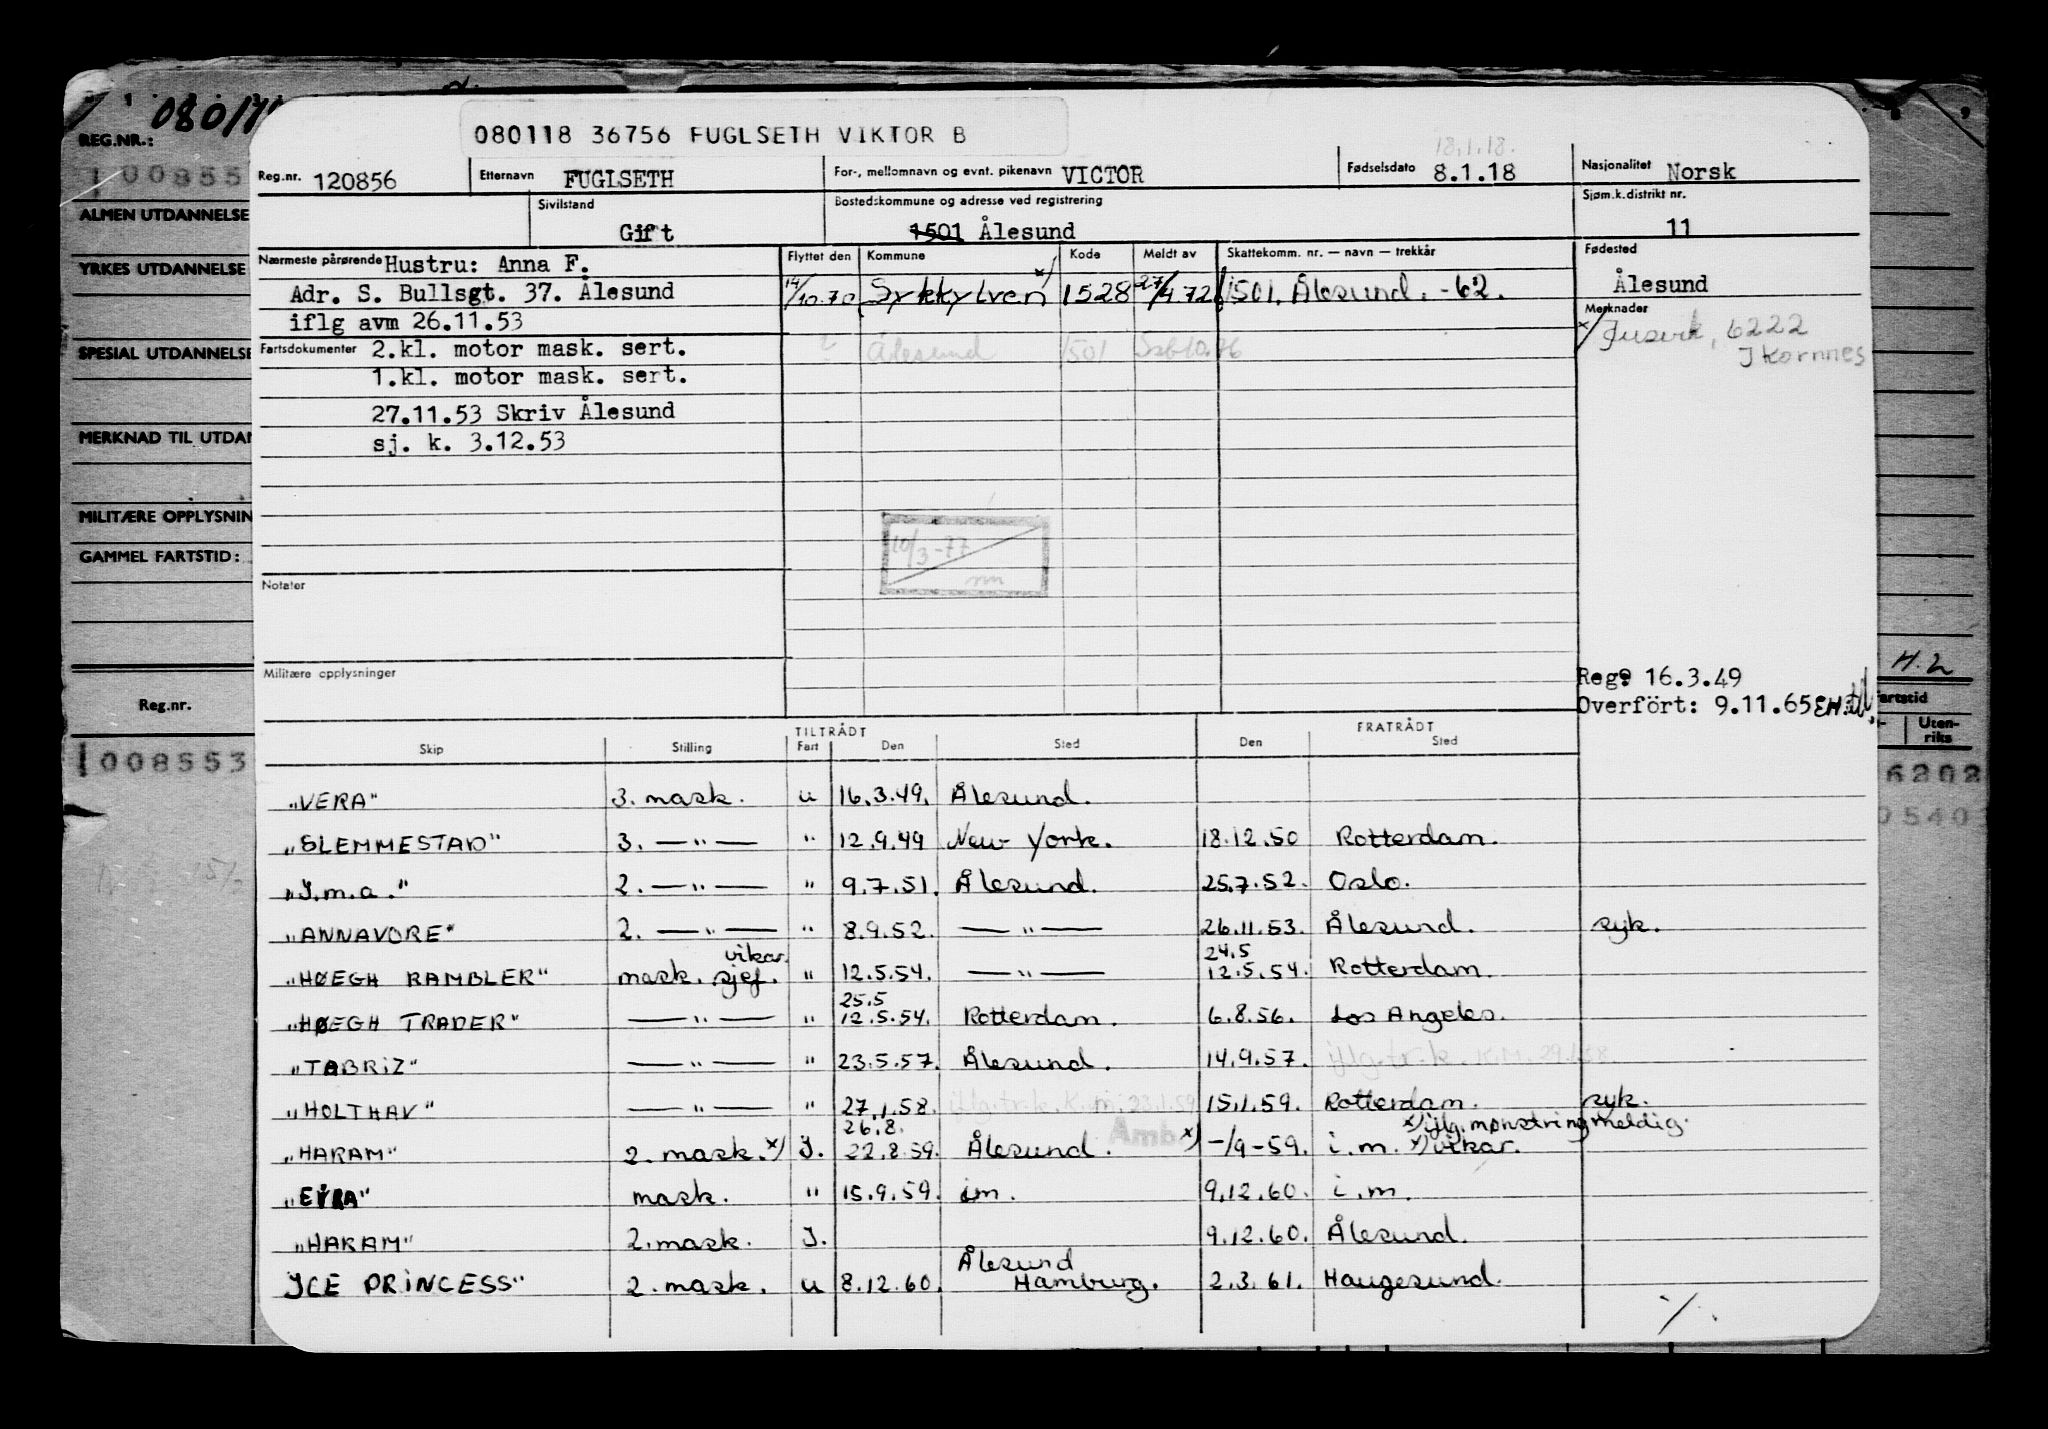 REG.NR.:
100855
ALMEN UTDANNELSE
YRKES UTDANNELSE
SPESIAL UTDANNELSE
MERKNAD TIL UTDAN
MILITÆRE OPPLYSNIN
GAMMEL FARTSTID:
Reg.nr.
1008553
080118 36756 FUGLSETH VIKTOR B
18.1.18.
Reg.nr. 120856 Etternavn FUGLSETH For-, mellomnavn og evnt. pikenavn VICTOR Fødselsdato 8.1.18 Nasjonalitet Norsk
Sivilstand Gift Bostedskommune og adresse ved registrering 1501 Ålesund Sjøm.k.distrikt nr. 11
Nærmeste pårørende Hustru: Anna F. Flyttet den Kommune Kode Meldt av Skattekomm. nr. — navn — trekkår Fødested
Adr. S. Bullsgt. 37. Ålesund 14/10.70 Sykkylven x) 1528 27/4.72 1501. Ålesund. -62. Ålesund
iflg avm 26.11.53 Merknader
Fartsdokumenter 2.kl. motor mask. sert. Ålesund 1501 x/ Jusvik, 6222
1.kl. motor mask. sert. Ikornnes
27.11.53 Skriv Ålesund
sj. k. 3.12.53
10/3-77
Notater
Militære opplysninger
Reg. 16.3.49
Overfört: 9.11.65
H.2
Fartstid
Uten-
riks
6202
0540
TILTRÅDT FRATRÅDT
Skip Stilling Fart Den Sted Den Sted
"VERA" 3. mask. u 16.3.49. Ålesund.
"SLEMMESTAD" 3. — " — " 12.9.49 New York. 18.12.50 Rotterdam.
"I.m.a." 2. — " — " 9.7.51. Ålesund. 25.7.52. Oslo.
"ANNAVORE" 2. — " — " 8.9.52. — " — 26.11.53. Ålesund. syk.
vikar. 24.5
"HØEGH RAMBLER" mask. sjef. " 12.5.54. — " — 12.5.54. Rotterdam.
25.5
"HØEGH TRADER" — " — " 12.5.54. Rotterdam. 6.8.56. Los Angeles.
"TABRIZ" — " — " 23.5.57. Ålesund. 14.9.57. iflg.tr.k. K.M. 29.1.58
"HOLTHAV" — " — " 27.1.58. iflg.tr.k. K.m. 23.1.59 15.1.59. Rotterdam. syk.
26.8. x) iflg. mønstringmeldig.
"HARAM" 2. mask. x) I. 22.8.59. Ålesund. x) -/9-59. i.m. x) vikar.
"EIRA" mask. " 15.9.59. im. 9.12.60. i.m.
"HARAM" 2. mask. I. 9.12.60. Ålesund.
Ålesund
ICE PRINCESS" 2. mask. u 8.12.60. Hamburg. 2.3.61. Haugesund.
%.